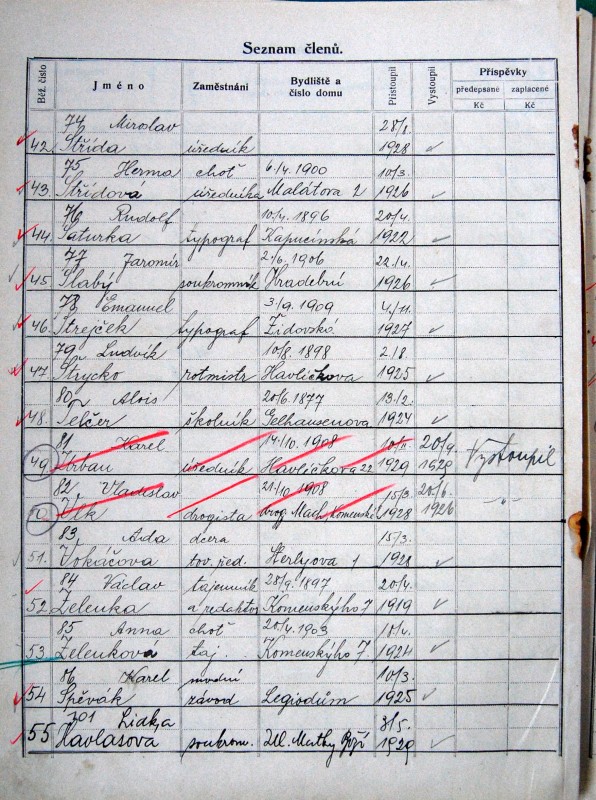 Seznam členů.
Běž. číslo Jméno Zaměstnání Bydliště a číslo domu Přistoupil Vystoupil Příspěvky
předepsané zaplacené
Kč Kč
74 Miroslav 28/1.
42. Střída úředník 1928
75 Herma choť 6./4. 1900 10/3.
43. Střídová úředníka Malátova 2 1926
76 Rudolf 10/4. 1896 20/4.
44. Šaturka typograf Kapucínská 1922
77 Jaromír 2./6. 1906 22./4.
45 Slabý soukromník Hradební 1926
78 Emanuel 3./9. 1909 4./11.
46. Strejček typograf Židovská 1927
79 Ludvík 10/8. 1898 2./8.
47 Strycko rotmistr Havlíčkova 1925
80 Alois 20/6. 1877 13/2.
48. Telčer školník Gelhausenova 1924
81 Karel 14./10. 1908 10/11. 20/9.
49 Urban úředník Havlíčkova 22 1929 1929 Vystoupil
82 Vladislav 21/10 1908 15/3. 20/6.
50 Vlk drogista drog. Mach, Komenské 1928 1926 -"-
83 Ada dcera 15/3.
51. Vokáčova tov. řed. 1 1928
84 Václav tajemník 28/9. 1897 20/4.
52 Zelenka a redaktor Komenského 7 1919
85 Anna choť 20/4. 1903 10/4.
53 Zelenkova taj. Komenského 7. 1924
86 Karel modní 10/3.
54 Spěvák závod Legiodům 1925
301 Lidka 31/5.
55 Havlasova soukrom. Ul. Matky Boží 1929